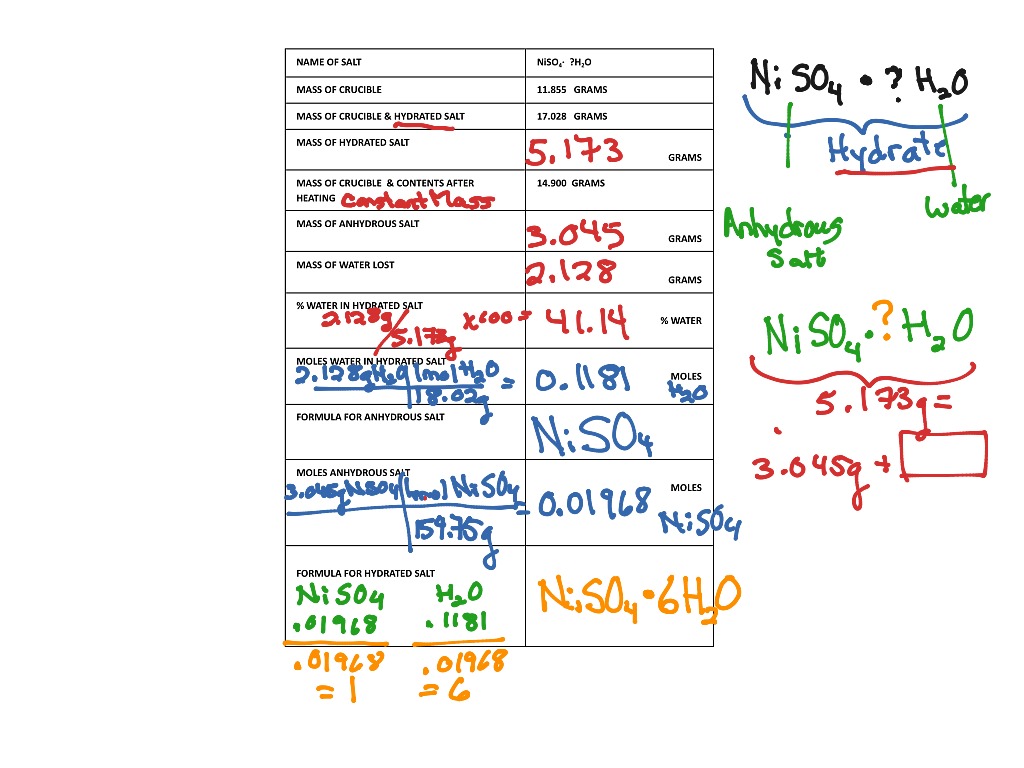 NAME OF SALT NiSO4· ?H2O
MASS OF CRUCIBLE 11.855 GRAMS
MASS OF CRUCIBLE & HYDRATED SALT 17.028 GRAMS
MASS OF HYDRATED SALT 5.173 GRAMS
MASS OF CRUCIBLE & CONTENTS AFTER 14.900 GRAMS
HEATING Constant Mass
MASS OF ANHYDROUS SALT 3.045 GRAMS
MASS OF WATER LOST 2.128 GRAMS
% WATER IN HYDRATED SALT
2.128g/5.173g x100 = 41.14 % WATER
MOLES WATER IN HYDRATED SALT
2.128g H2O | 1mol H2O = 0.1181 MOLES
18.02g H2O
FORMULA FOR ANHYDROUS SALT NiSO4
MOLES ANHYDROUS SALT
3.045g NiSO4 | 1mol NiSO4 = 0.01968 MOLES
159.75g NiSO4
FORMULA FOR HYDRATED SALT
NiSO4 H2O NiSO4 • 6H2O
.01968 .1181
.01968 .01968
= 1 = 6
NiSO4 • ? H2O
Hydrate
Water
Anhydrous
Salt
NiSO4 • ? H2O
5.173g =
3.045g +